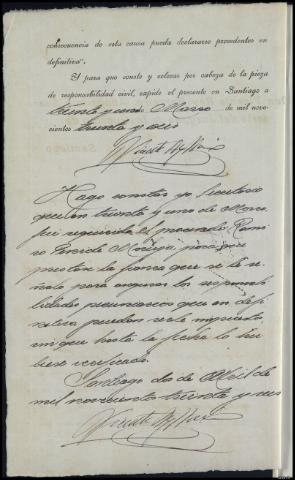 consecuencia de esta causa pueda declararse procedentes en
definitiva".
Y para que conste y colocar por cabeza de la pieza
de responsabilidad civil, expido el presente en Santiago a
treinta y uno de Marzo de mil nove-
cientos treinta y seis
Hago constar yo Secretario
que en treinta y uno de Marzo
fué requerido el procesado
para que
prestara la fianza que se le se-
ñala para asegurar las responsabi-
lidades pecuniarias que en defi-
nitiva puedan serle impuestas
sin que hasta la fecha lo hu-
biese verificado.
Santiago dos de Abril de
mil novecientos treinta y seis